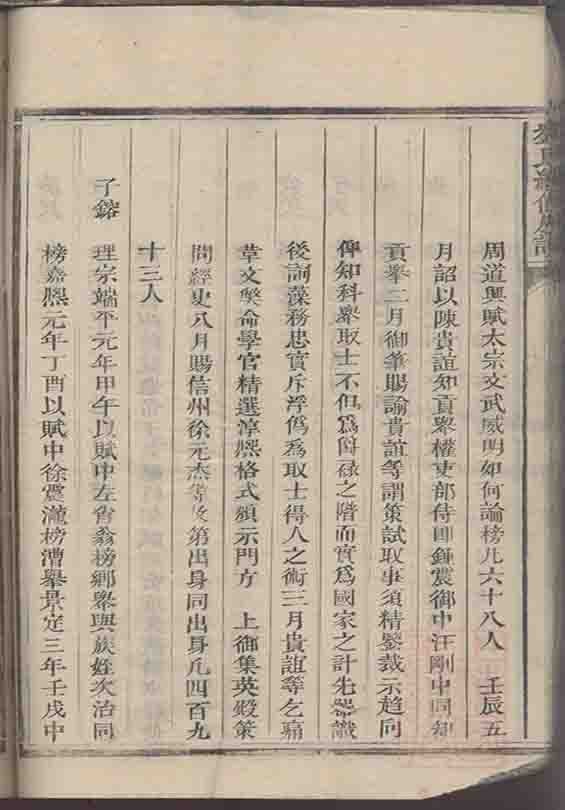 周道興賦太宗文武威明如何論榜凡六十八人　壬辰五
月詔以陳貴誼知貢舉權吏部侍郎鍾震御中汪剛中同知
貢舉二月御筆賜諭貴誼等謂策試取事須精鑒裁示趨向
俾知科舉取士不但為爵祿之階而實為國家之計先器識
後詞藻務忠實斥浮偽為取士得人之術三月貴誼等乞
草文弊命學官精選淳熙格式頒示門方　上御集英殿策
問經史八月賜信州徐元杰等及第出身同出身凡四百九
十三人
了鎔　理宗端平元年甲午以賦中左宵翁榜鄉舉與族姪次治同
榜嘉熙元年丁酉以賦中徐震瀧榜漕舉景定三年壬戌中